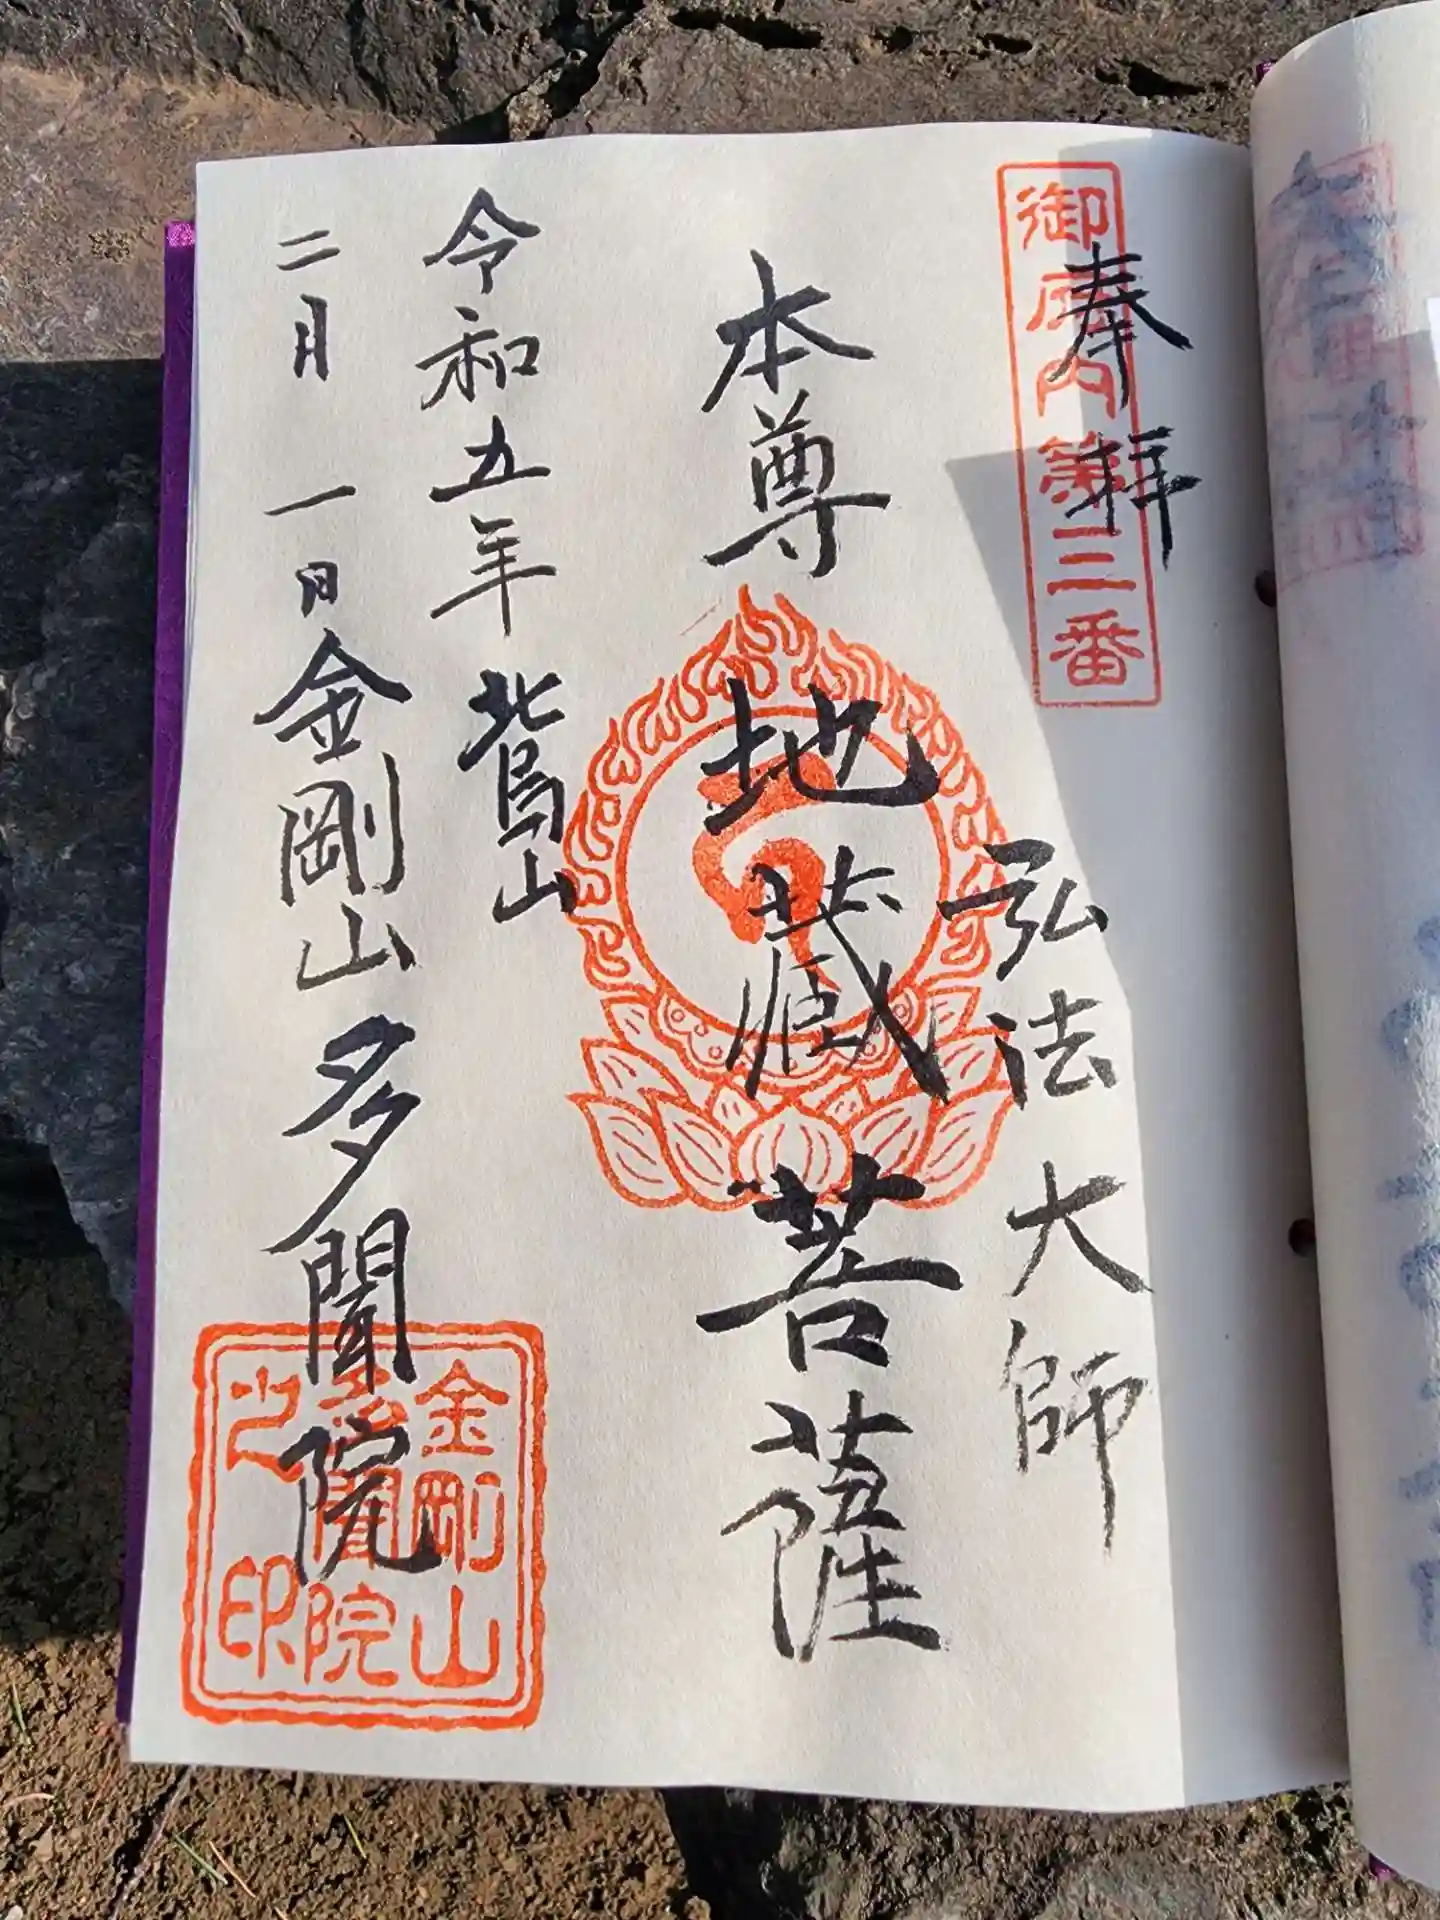 御府内第三番
奉拝
弘法大師
本尊
地蔵
菩薩
令和五年
北鷲山
二月一日
金剛山多聞院
金剛山
多聞院
之印